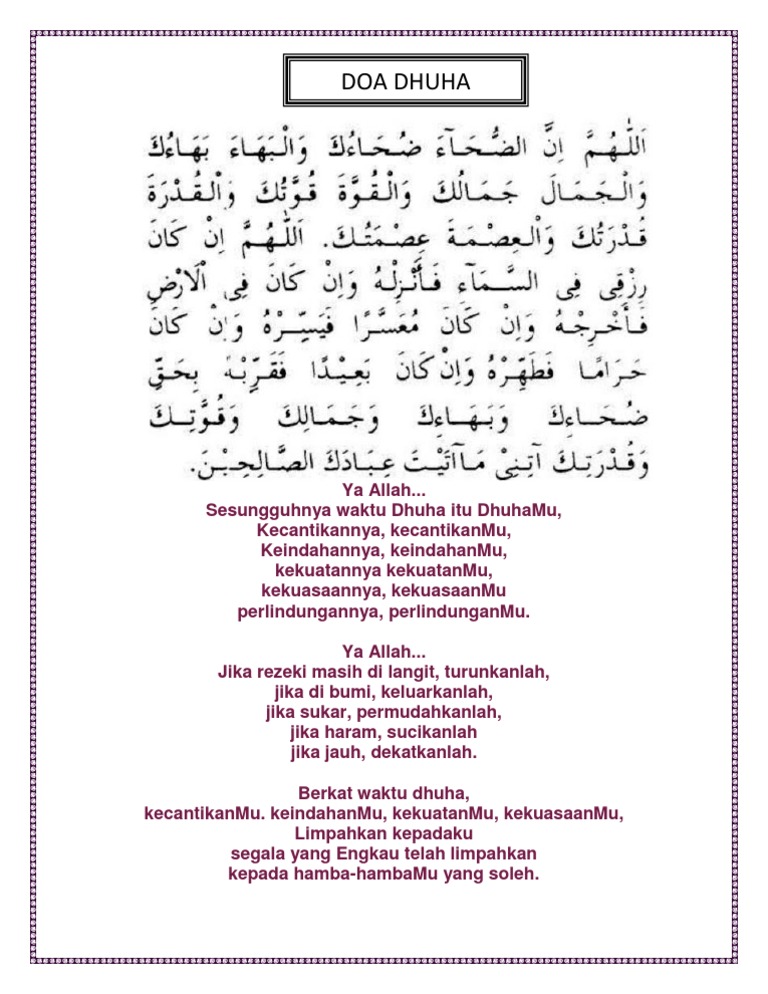 DOA DHUHA
اَللّٰهُمَّ اِنَّ الضُّحَآءَ ضُحَاءُكَ وَالْبَهَاءَ بَهَاءُكَ
وَالْجَمَالَ جَمَالُكَ وَالْقُوَّةَ قُوَّتُكَ وَالْقُدْرَةَ
قُدْرَتُكَ وَالْعِصْمَةَ عِصْمَتُكَ. اَللّٰهُمَّ اِنْ كَانَ
رِزْقِى فِى السَّمَآءِ فَأَنْزِلْهُ وَاِنْ كَانَ فِى اْلاَرْضِ
فَأَخْرِجْهُ وَاِنْ كَانَ مُعَسَّرًا فَيَسِّرْهُ وَاِنْ كَانَ
حَرَامًا فَطَهِّرْهُ وَاِنْ كَانَ بَعِيْدًا فَقَرِّبْهُ بِحَقِّ
ضُحَاءِكَ وَبَهَاءِكَ وَجَمَالِكَ وَقُوَّتِكَ
وَقُدْرَتِكَ آتِنِىْ مَآاَتَيْتَ عِبَادَكَ الصَّالِحِيْنَ.
Ya Allah...
Sesungguhnya waktu Dhuha itu DhuhaMu,
Kecantikannya, kecantikanMu,
Keindahannya, keindahanMu,
kekuatannya kekuatanMu,
kekuasaannya, kekuasaanMu
perlindungannya, perlindunganMu.
Ya Allah...
Jika rezeki masih di langit, turunkanlah,
jika di bumi, keluarkanlah,
jika sukar, permudahkanlah,
jika haram, sucikanlah
jika jauh, dekatkanlah.
Berkat waktu dhuha,
kecantikanMu. keindahanMu, kekuatanMu, kekuasaanMu,
Limpahkan kepadaku
segala yang Engkau telah limpahkan
kepada hamba-hambaMu yang soleh.